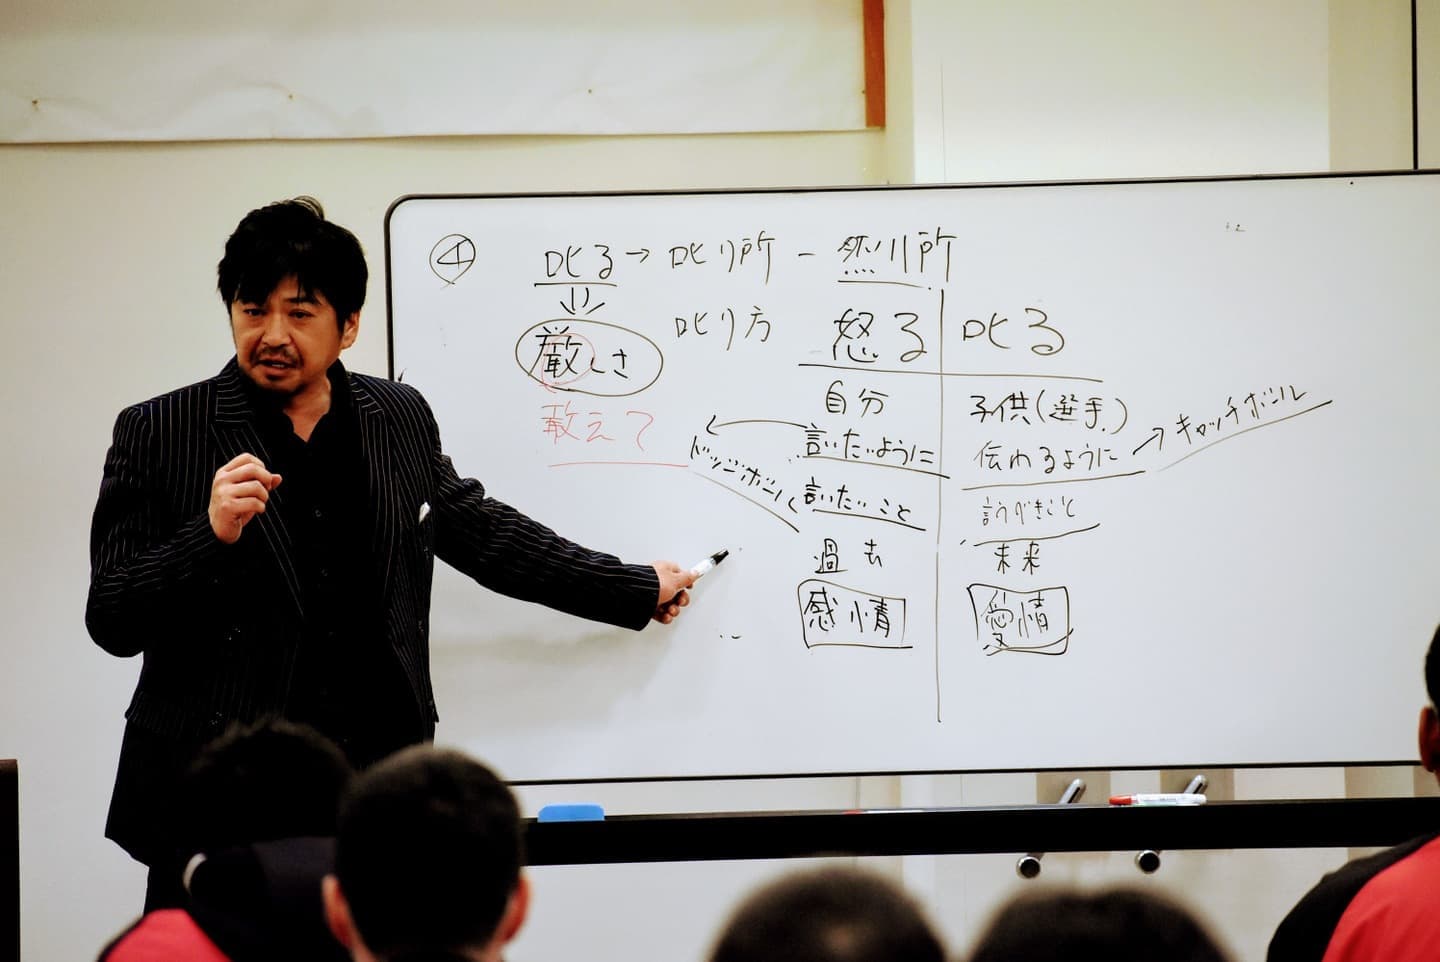 ④
叱る→叱り所 - 然り所
厳しさ
敢えて
叱り方
怒る
自分
言いたいように
言いたいこと
過去
感情
ドッジボール
叱る
子供(選手)
伝わるように→キャッチボール
言うべきこと
未来
愛情